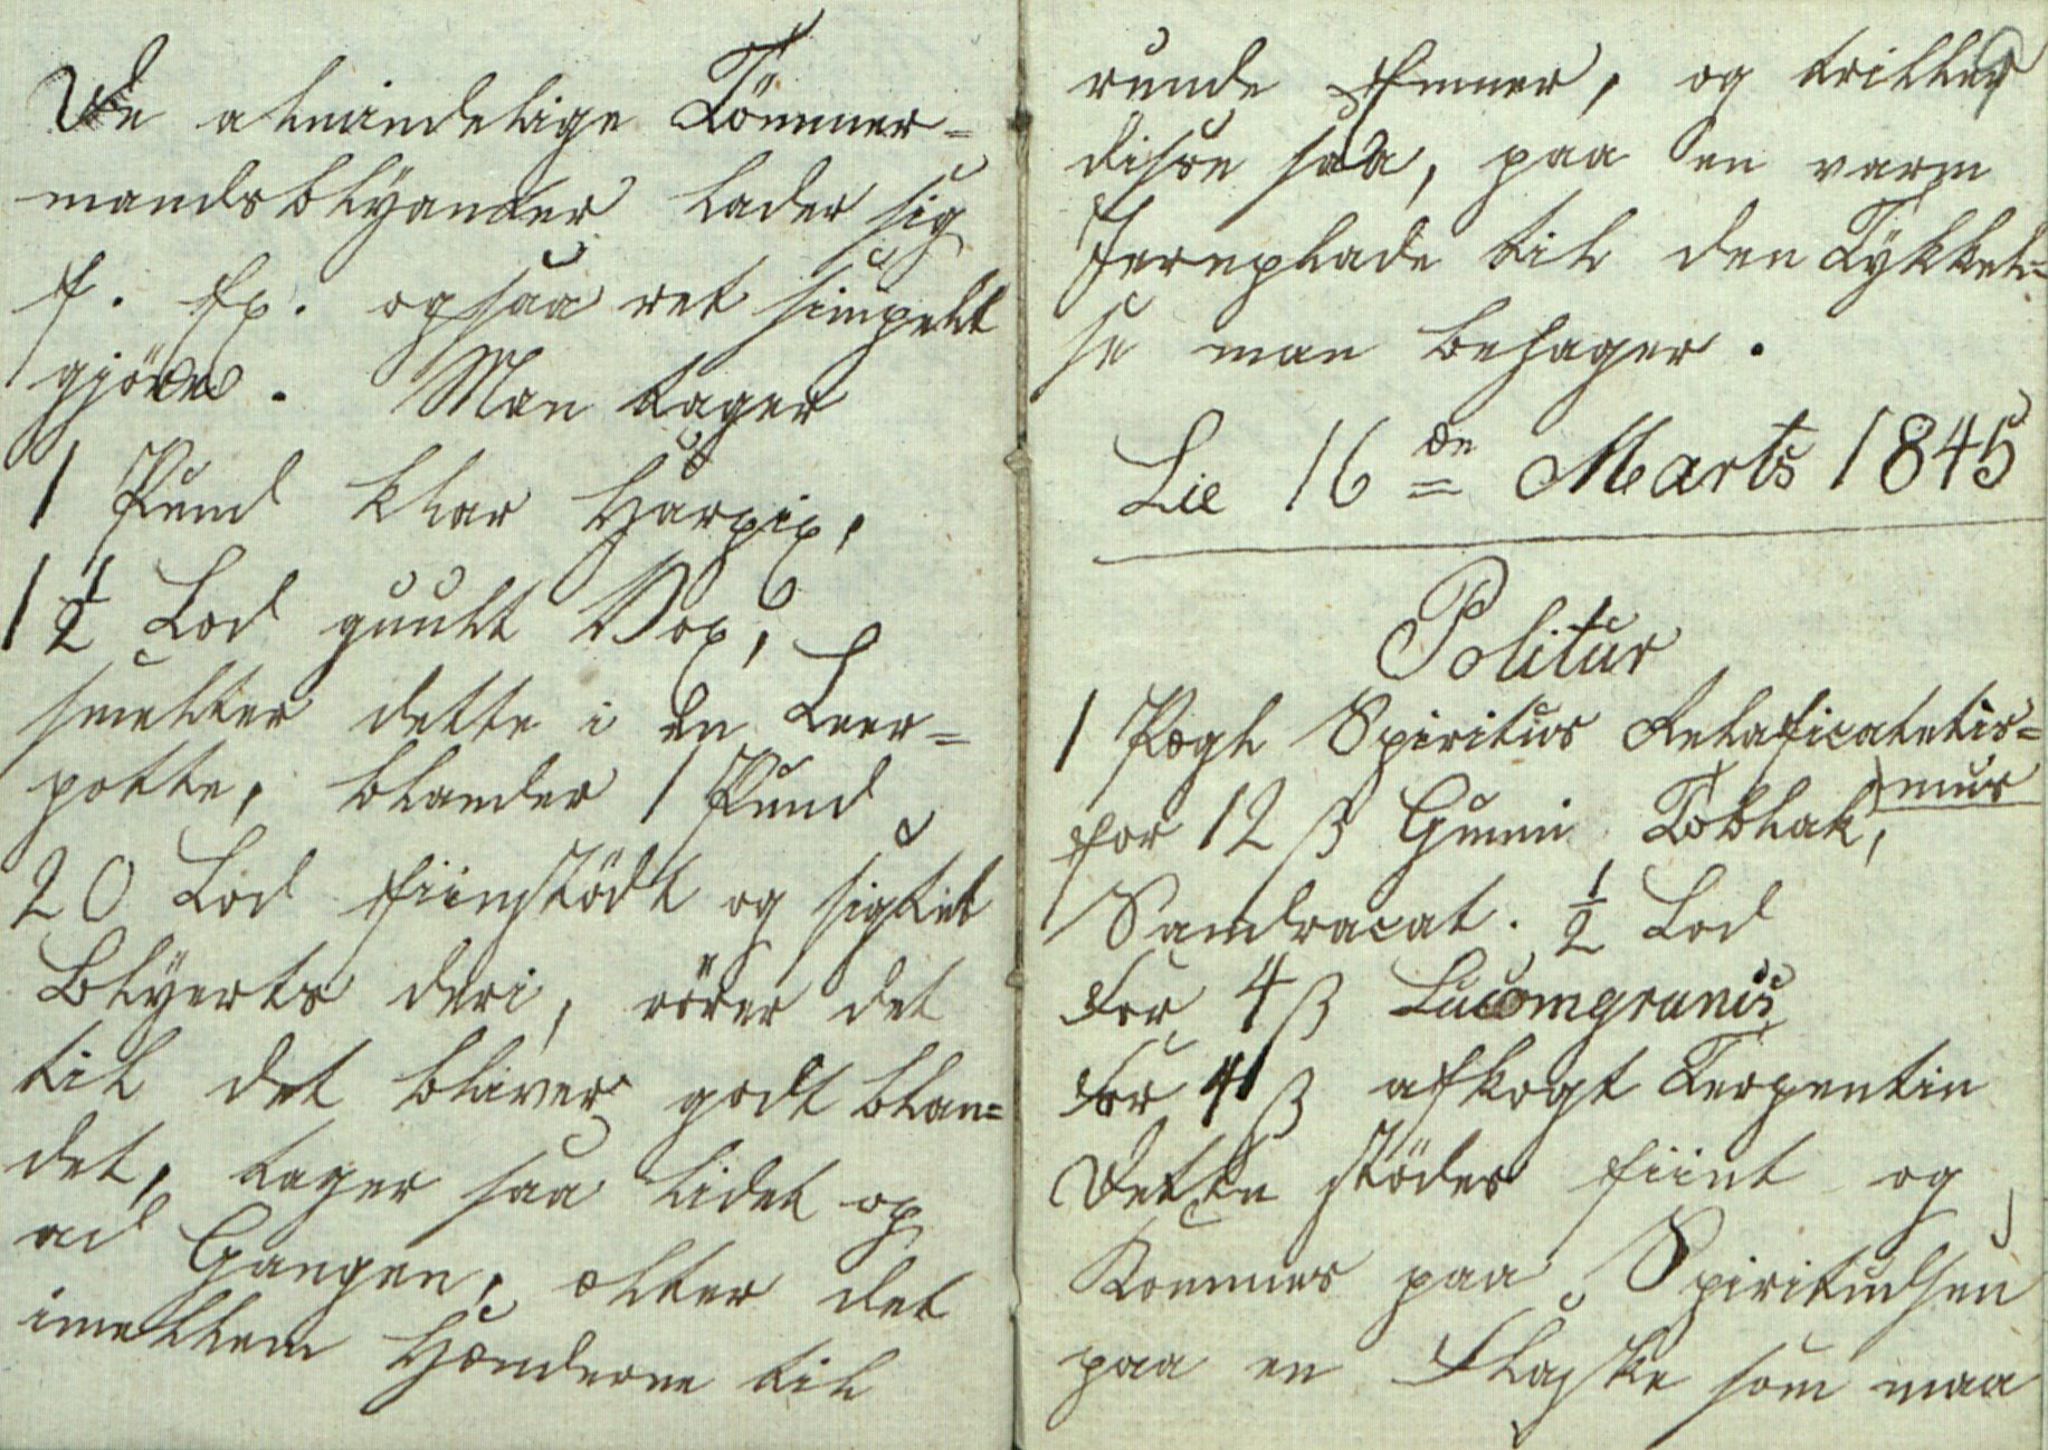 De almindelige Tömmer=
mandsblÿanter lader sig
f. Ex. ogsaa ret simpelt
gjöre. Man tager
1 Pund klar Harpix,
1 1/2 Lod guult Vox,
smelter dette i en Leer=
potte, blander 1 Pund
20 Lod fiinstödt og sigtet
Blÿerts deri, rörer det
til det bliver godt blan=
det, tager saa lidet op
ad Gangen, ælter det
imellem Hænderne til
runde Emner, og triller
disse saa, paa en varm
Jernplade til den Tÿkkel=
se man behager.
Lie 16de Marts 1845
Politur
1 Pægl Spiritus Rektaficatetis=
mus
for 12 ß Gummi Laklak,
Sandracat. 1/2 Lod
For 4 ß Lucomgranis
For 4 ß afkogt Terpentin
Dette stödes fiint og
Kommes paa Spiritudsen
paa en Flaske som maa